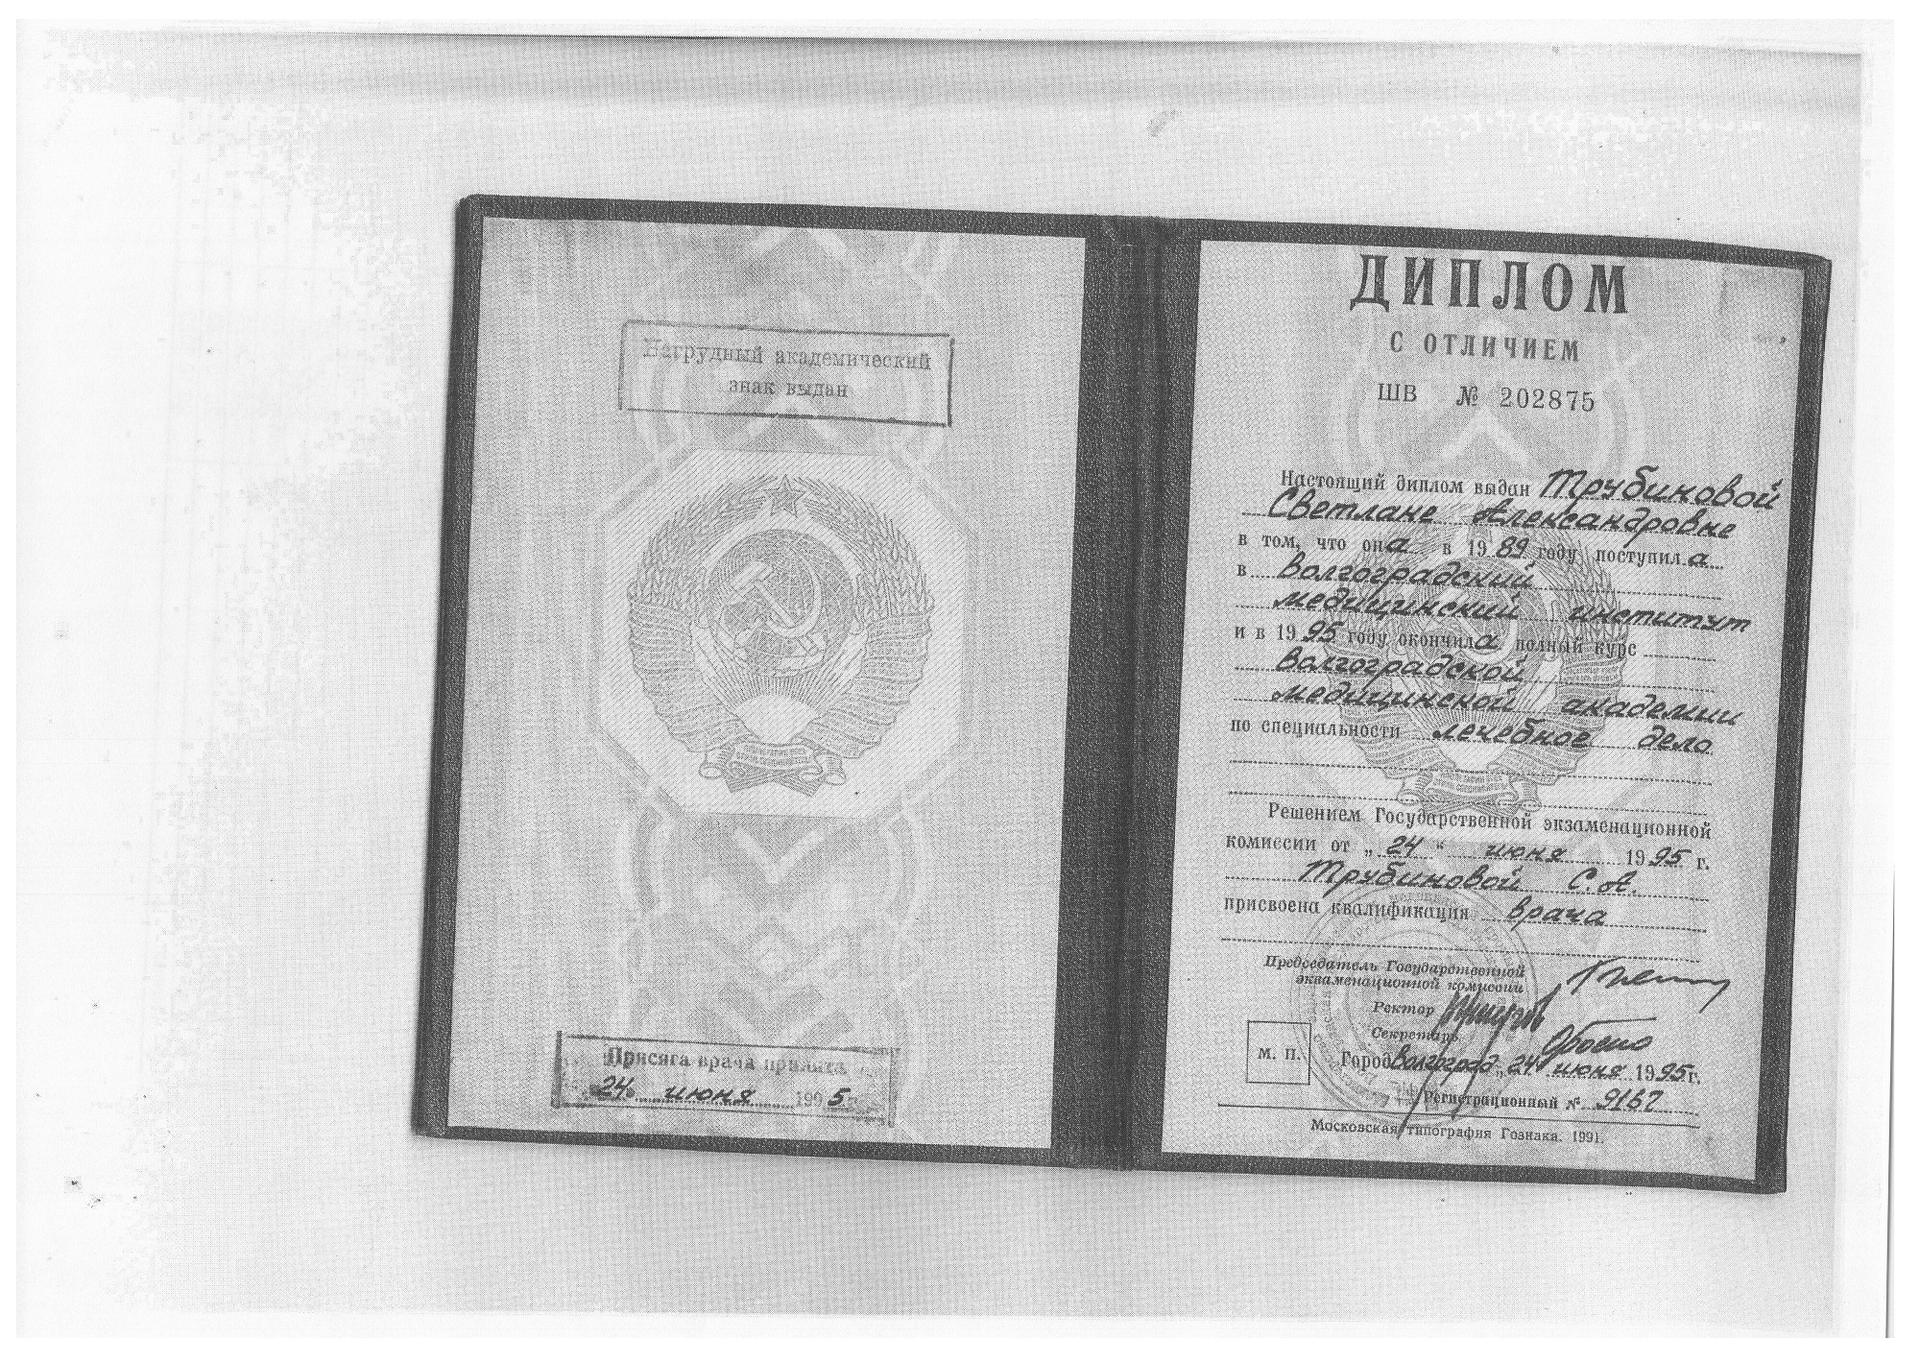 Нагрудный академический
знак выдан
Присяга врача принята
24 июня 1995 г.
ДИПЛОМ
С ОТЛИЧИЕМ
ШВ № 202875
Настоящий диплом выдан Трубиновой
Светлане Александровне
в том, что она в 1989 году поступила
в Волгоградский
медицинский институт
и в 1995 году окончила полный курс
Волгоградской
медицинской академии
по специальности лечебное дело
Решением Государственной экзаменационной
комиссии от „24“ июня 1995 г.
Трубиновой С.А.
присвоена квалификация врача
Председатель Государственной
экзаменационной комиссии
Ректор
Секретарь
М. П.
Город Волгоград „24“ июня 1995 г.
Регистрационный № 9167
Московская типография Гознака. 1991.